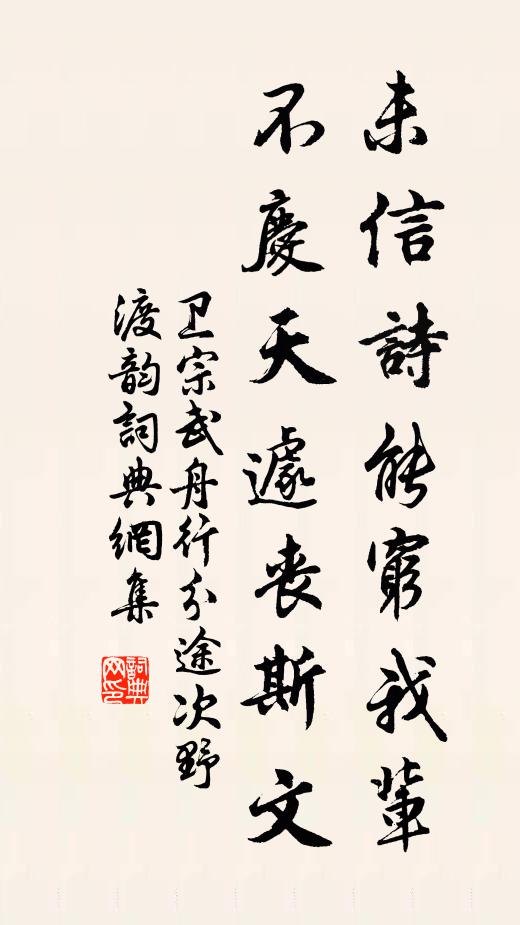 未信詩能窮我輩
不慶天遽丧斯文
卫宗武舟行分途次野
渡韵詞典網集
詞典网印